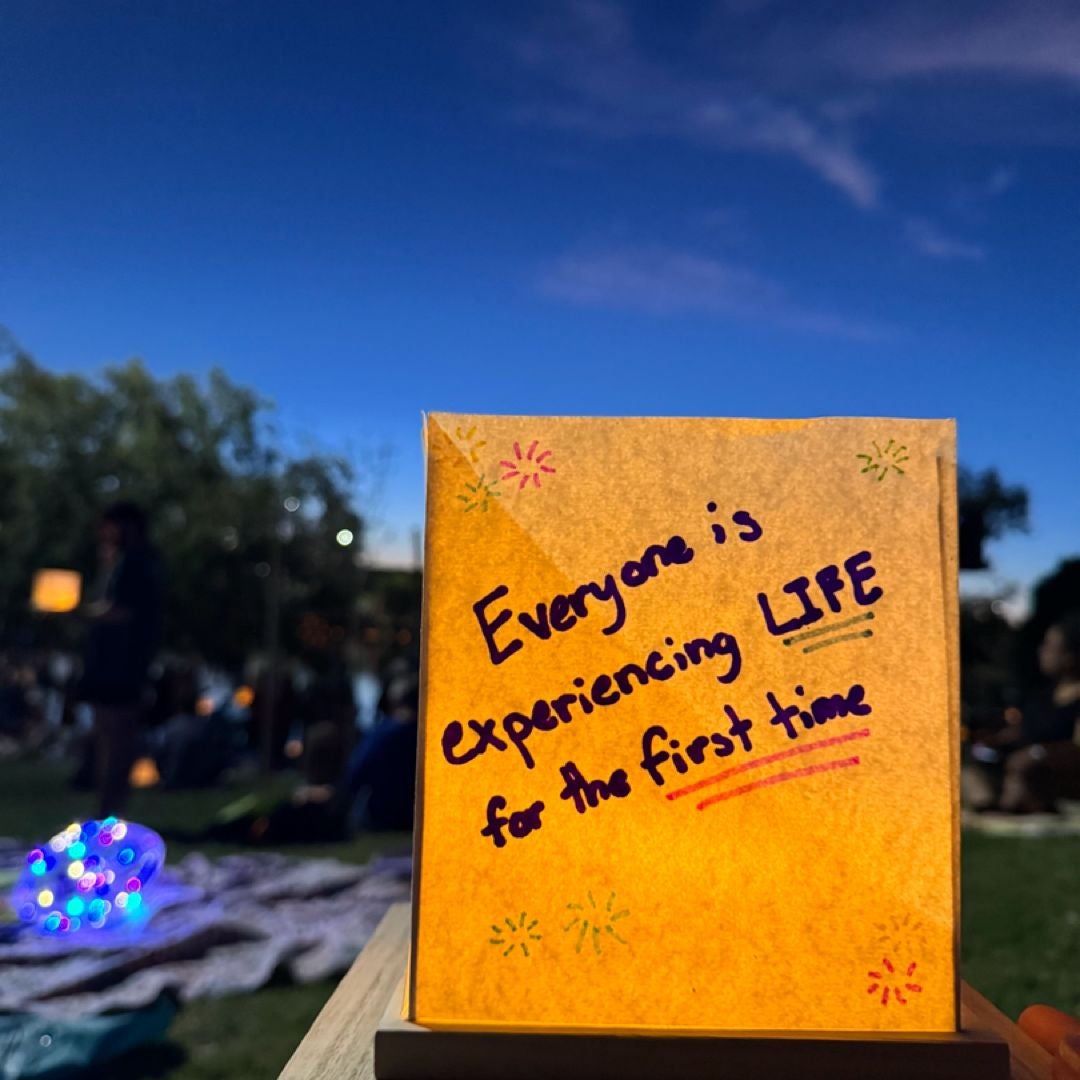 Everyone is
experiencing LIFE
for the first time